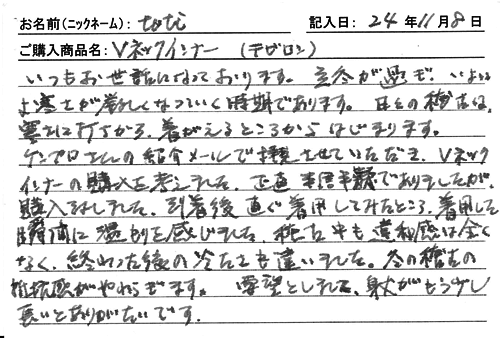 お名前(ニックネーム): toti 記入日: 24年11月8日
ご購入商品名: Vネックインナー (テビロン)
いつもお世話になっております。立冬が過ぎ、いよいよ
よ寒さが厳しくなっていく時期であります。日々の稽古は、
寒さに打ちかち、着がえるところからはじまります。
ケンプロさんの紹介メールで拝聴させていただき、Vネック
インナーの購入を考えました。正直半信半疑でありましたが、
購入致しました。到着後直ぐ着用してみたところ、着用した
瞬間に温もりを感じました。稽古中も違和感は全く
なく、終わった後の冷たさも違いました。冬の稽古の
抵抗感がやわらぎます。要望としまして、身丈がもう少し
長いとありがたいです。